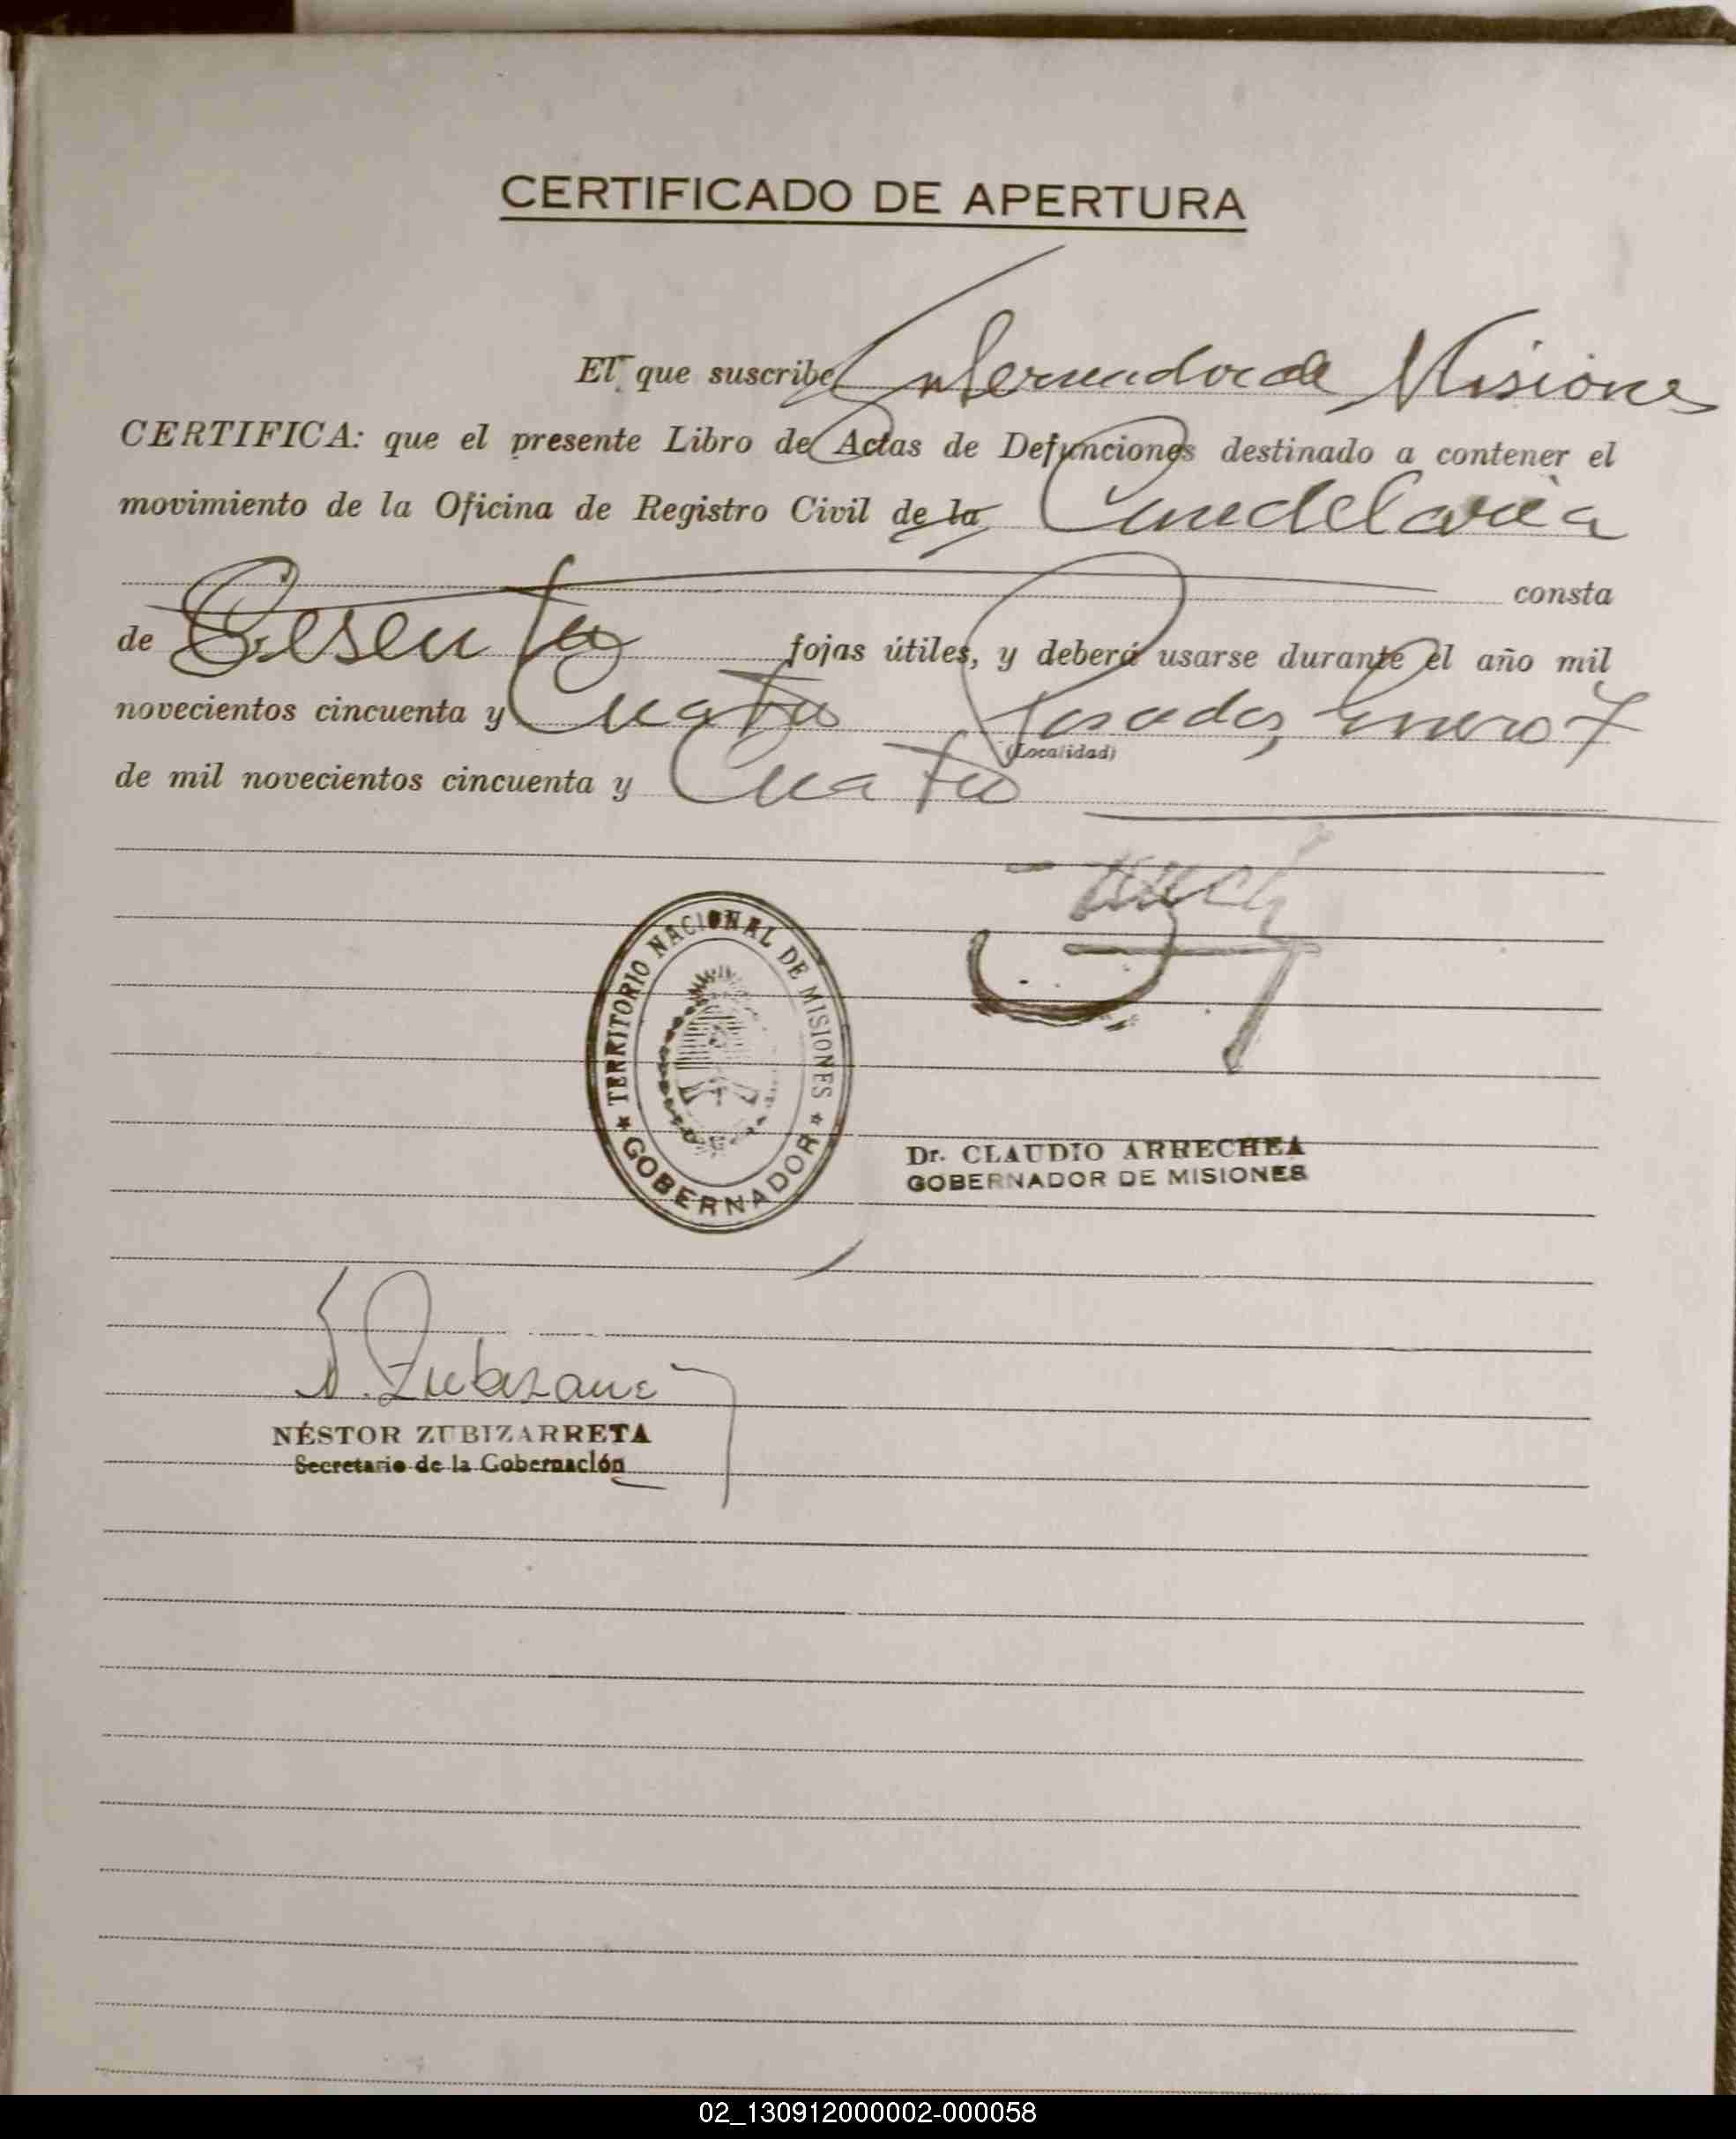 CERTIFICADO DE APERTURA
El que suscribe Gobernador de Misiones
CERTIFICA: que el presente Libro de Actas de Defunciones destinado a contener el
movimiento de la Oficina de Registro Civil de la Candelaria
consta
de Sesenta fojas útiles, y deberá usarse durante el año mil
novecientos cincuenta y Cuatro Posadas, Enero 7
(Localidad)
de mil novecientos cincuenta y Cuatro
TERRITORIO NACIONAL DE MISIONES
GOBERNADOR
Dr. CLAUDIO ARRECHEA
GOBERNADOR DE MISIONES
N. Zubizarreta
NÉSTOR ZUBIZARRETA
Secretario de la Gobernación
02_130912000002-000058